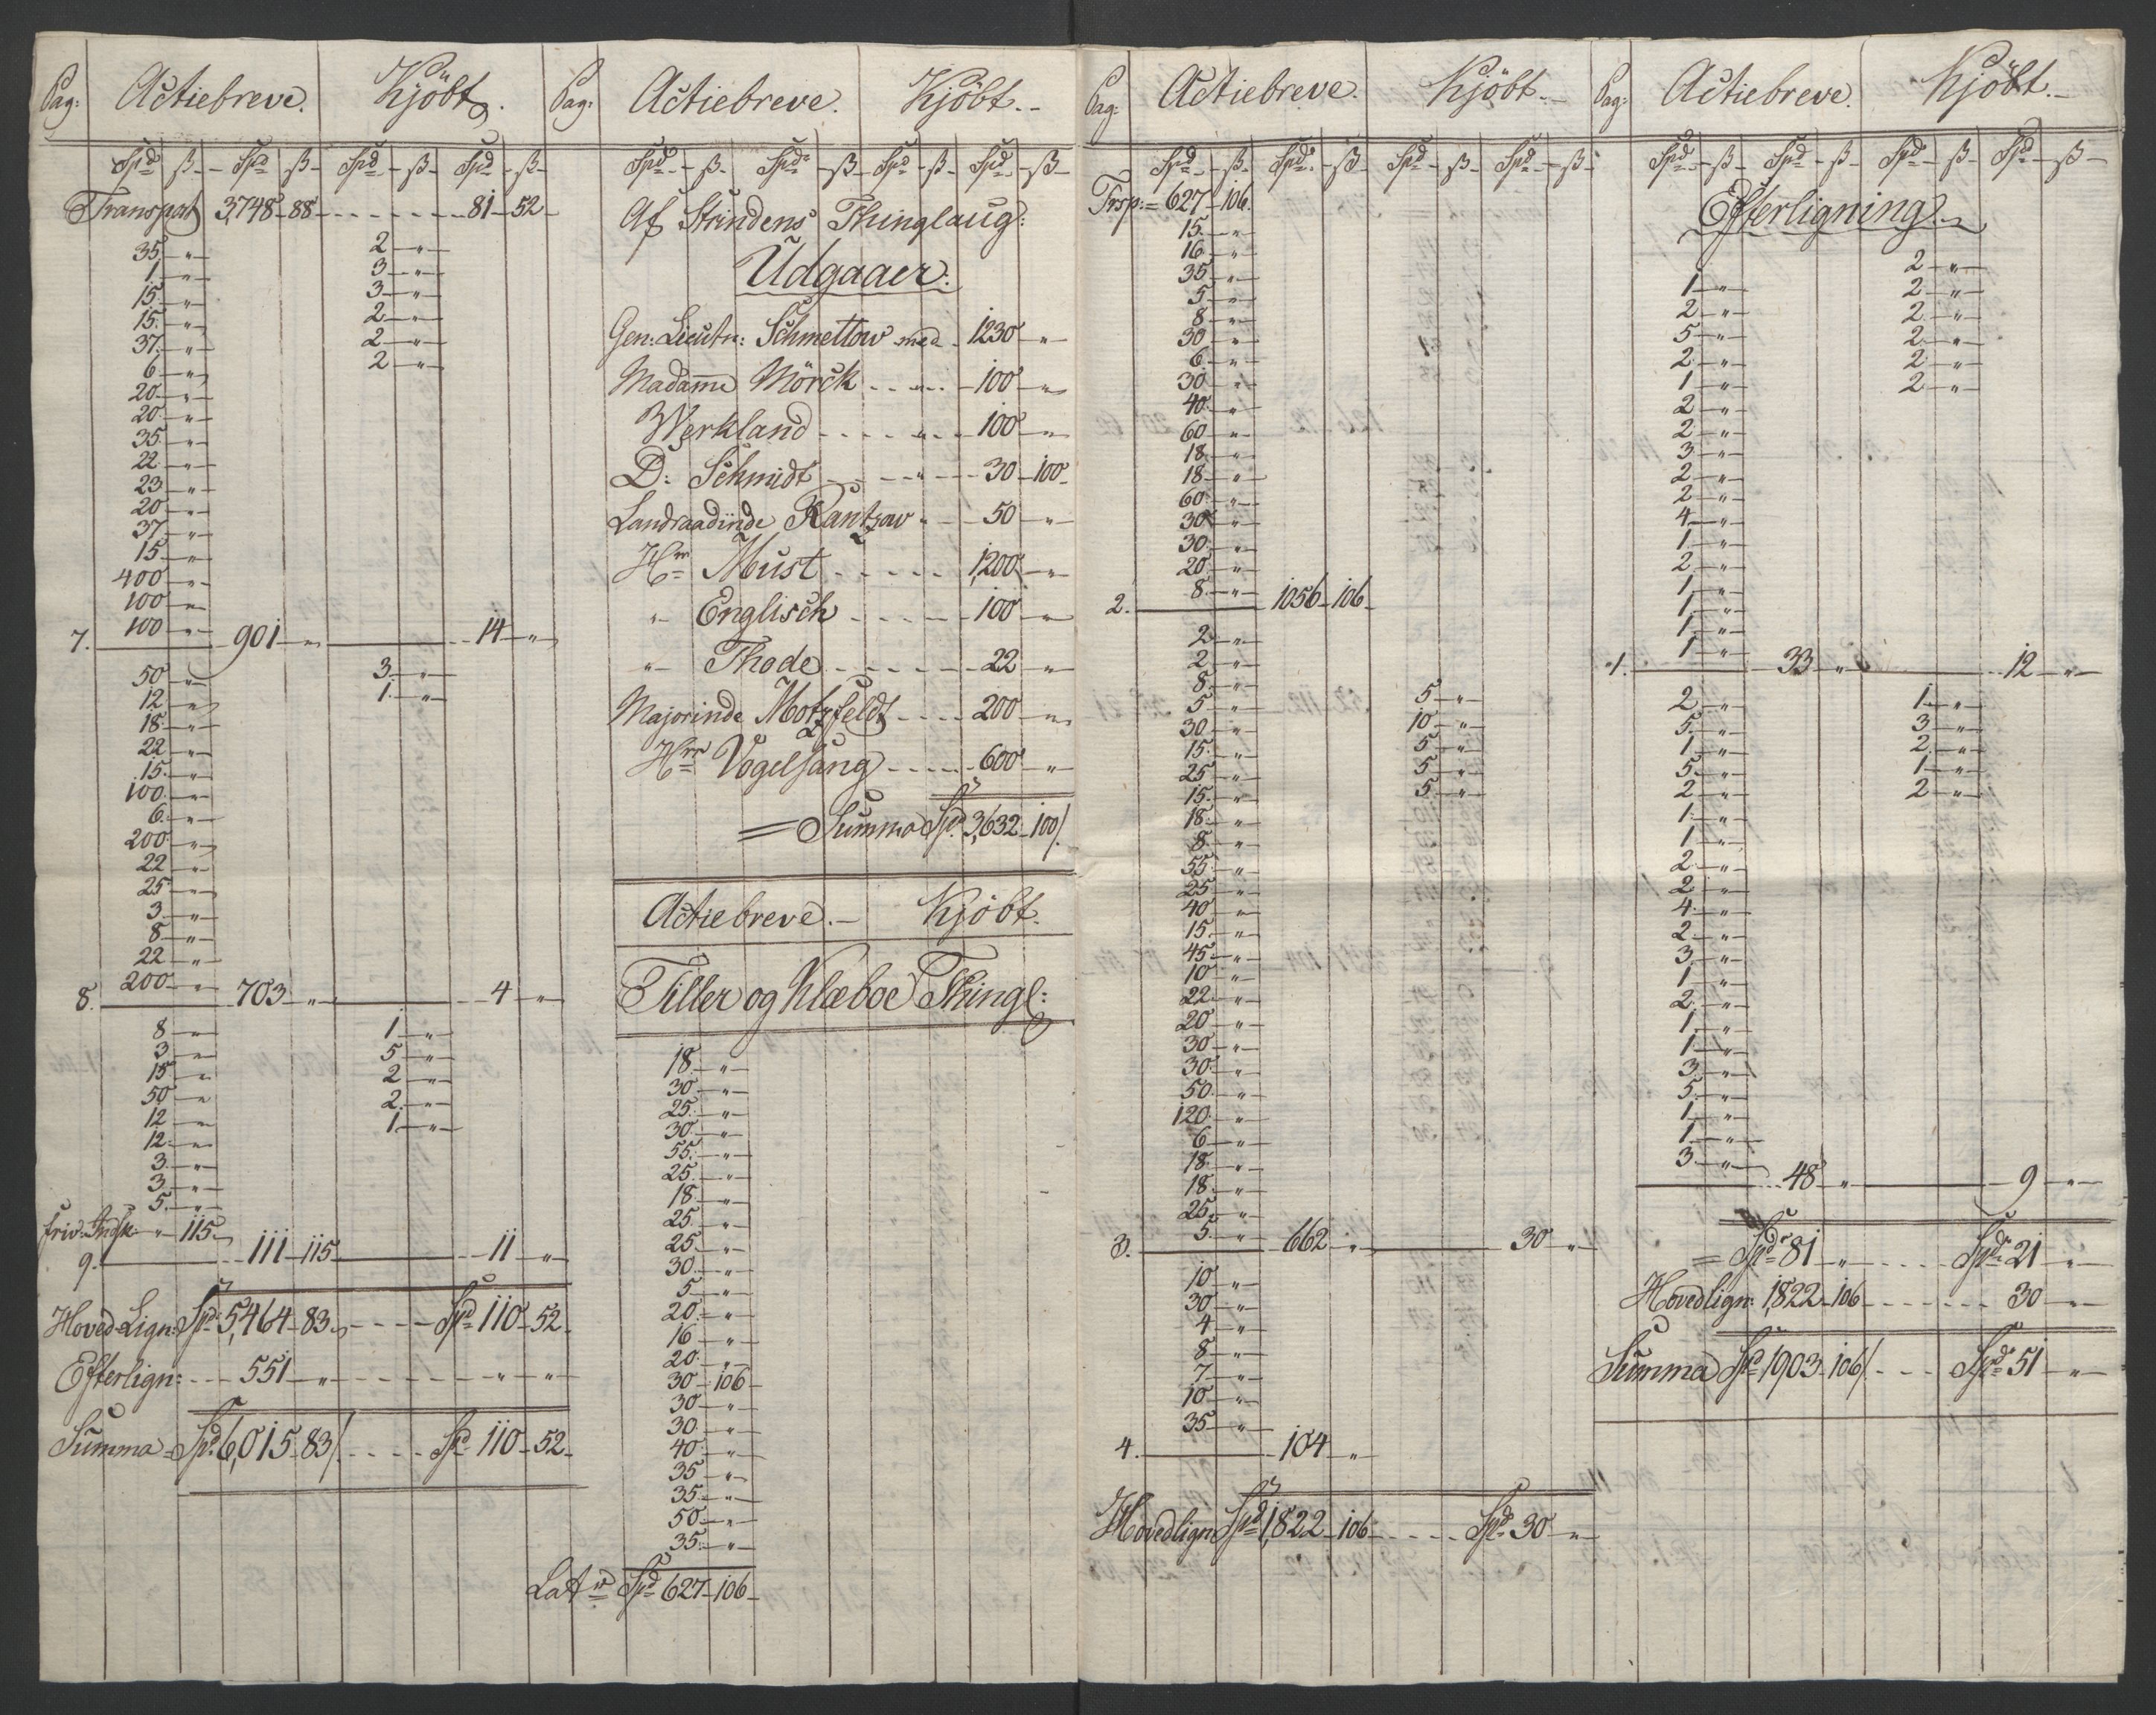 Pag: Actiebreve. Kjöbt.
Spd ß Spd ß Spd ß Spd ß
Transport 3,748 - 88 - - - - - - 81 - 52
35 - " 2 - "
1 - " 3 - "
15 - " 3 - "
15 - " 2 - "
37 - " 2 - "
6 - " 2 - "
20 - "
20 - "
35 - "
22 - "
23 - "
20 - "
37 - "
15 - "
400 - "
100 - "
100 - "
7. 901 - " 14 - "
50 - " 3 - "
12 - " 1 - "
18 - "
22 - "
15 - "
100 - "
6 - "
200 - "
22 - "
25 - "
3 - "
8 - "
22 - "
200 - "
8. 703 - " 4 - "
8 - " 1 - "
3 - " 5 - "
15 - " 2 - "
50 - " 2 - "
12 - " 1 - "
12 - "
3 - "
3 - "
5 - "
friv. Indsk. " 115
9. 111 - 115 11 - "
Hoved-Lign: Spd 5,464 - 83 - - - - Spd 110 - 52
Efterlign: - - - 551 - " - - - - - " - "
Summa = Spd 6,015 - 83/. - - - - Spd 110 - 52
Pag: Actiebreve. Kjöbt. -
Spd ß Spd ß Spd ß Spd ß
Af Strindens Thinglaug:
Udgaaer.
Gen: Lieutn: Schmettow med - 1230 - "
Madame Mörck - - - - 100 - "
Werkland - - - - 100 - "
D: Schmidt - - - - 30 - 100
Landraadinde Rantzow - - 50 - "
Hrr Must - - - - - 1,200 - "
" Englisch - - - - - 100 - "
" Thode - - - - - 22 - "
Majorinde Motzfeldt - - - - 200 - "
Hrr Vogelsang - - - - 600 - "
= Summa Spd 3,632 - 100/.
Actiebreve. - Kjöbt.
Tiller og Klæboe Thingl:
18 - "
30 - "
25 - "
30 - "
55 - "
25 - "
18 - "
25 - "
25 - "
30 - "
5 - "
20 - "
16 - "
20 - "
30 - 106
30 - "
30 - "
40 - "
35 - "
35 - "
50 - "
35 - "
Lat Spd 627 - 106
Pag: Actiebreve. Kjöbt. -
Spd ß Spd ß Spd ß Spd ß
Trsp: = 627 - 106.
15 - "
16 - "
35 - "
5 - "
8 - "
30 - "
6 - "
30 - "
40 - "
60 - "
18 - "
18 - "
60 - "
30 - "
30 - "
20 - "
8 - "
2. 1056 - 106
2 - "
2 - "
8 - "
5 - " 5 - "
30 - " 10 - "
15 - " 5 - "
25 - " 5 - "
15 - " 5 - "
18 - "
8 - "
55 - "
25 - "
40 - "
15 - "
45 - "
10 - "
22 - "
20 - "
30 - "
30 - "
50 - "
120 - "
6 - "
18 - "
18 - "
25 - "
5 - "
3. 662 - " 30 - "
10 - "
30 - "
4 - "
8 - "
7 - "
10 - "
35 - "
4. 104 - "
Hovedlign: Spd 1,822 - 106 - - - - Spd 30 - "
Pag: Actiebreve. Kjöbt. -
Spd ß Spd ß Spd ß Spd ß
Efterligning.
1 - " 2 - "
2 - " 2 - "
5 - " 2 - "
2 - " 2 - "
1 - " 2 - "
2 - " 2 - "
2 - "
3 - "
2 - "
2 - "
4 - "
1 - "
2 - "
1 - "
1 - "
1 - "
1 - "
1. 33 - " 12 - "
2 - " 1 - "
5 - " 3 - "
1 - " 2 - "
5 - " 1 - "
2 - " 2 - "
1 - "
1 - "
2 - "
2 - "
4 - "
2 - "
3 - "
1 - "
2 - "
1 - "
1 - "
3 - "
5 - "
1 - "
1 - "
3 - "
48 - " 9 - "
= Spd 81 - " - - - Spd 21 - "
Hovedlign: 1,822 - 106 - - - - - 30 - "
Summa Spd 1903 - 106/. - - - Spd 51 - "